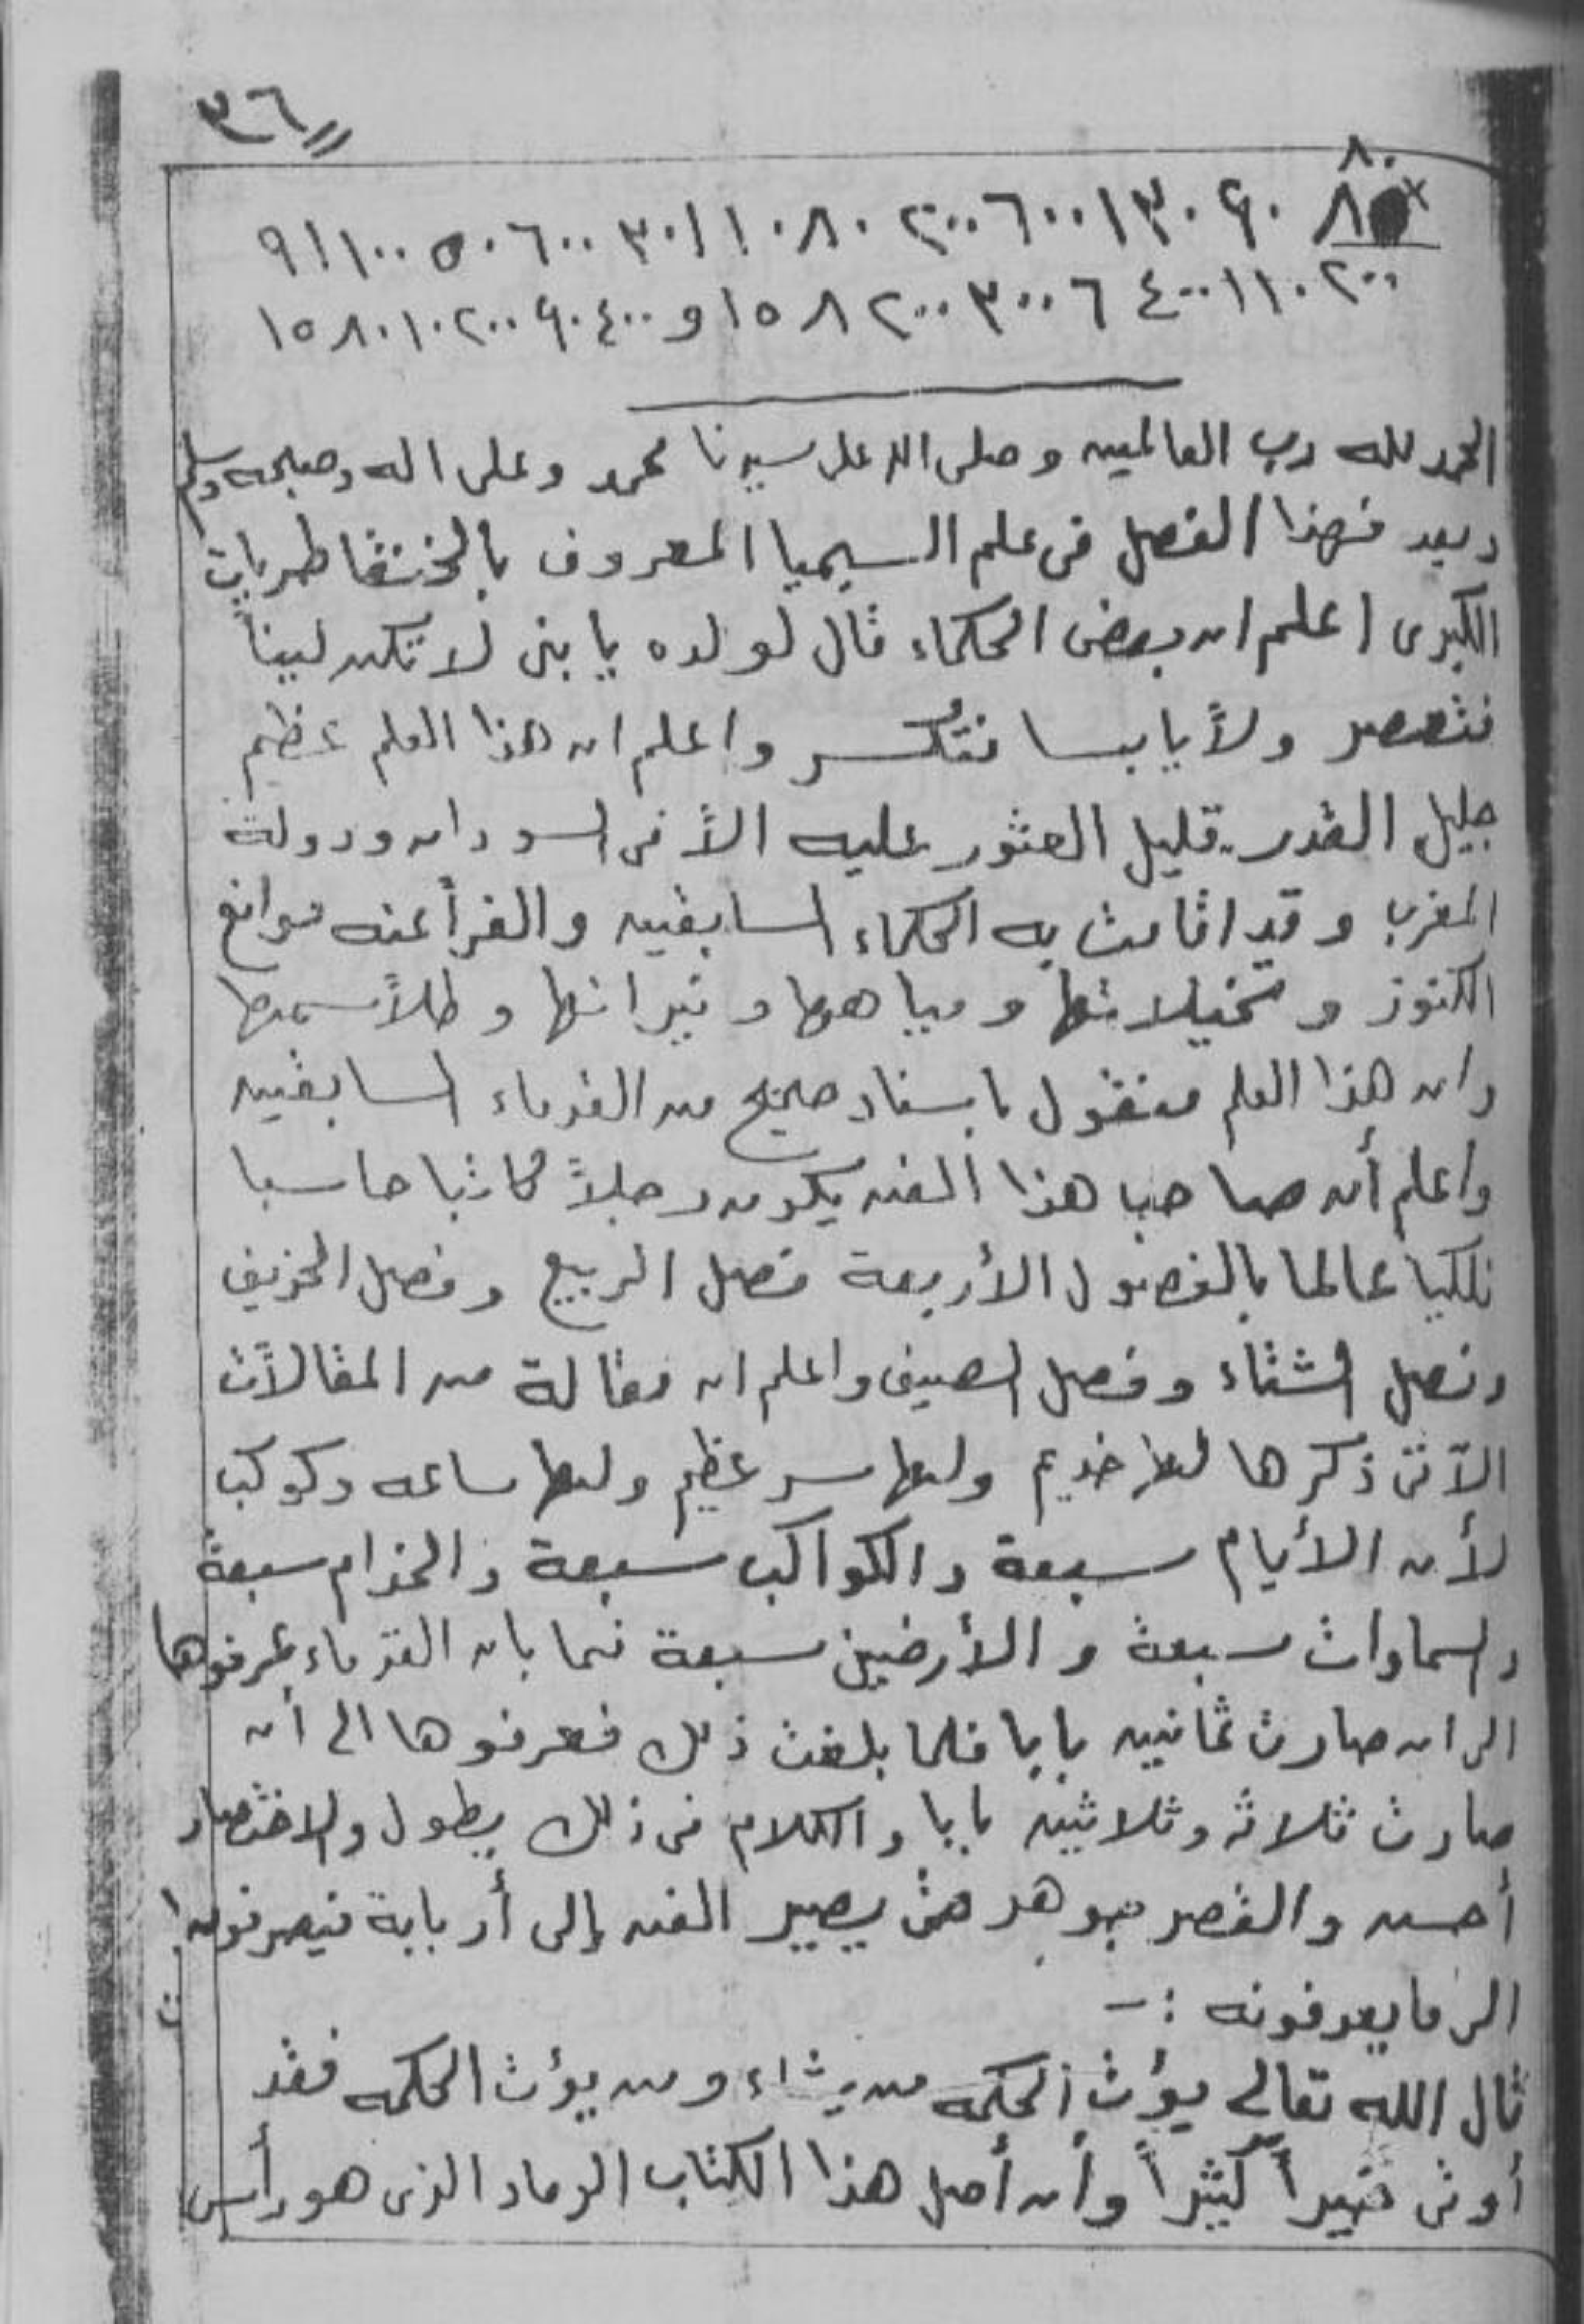 ٣٦
٨٠
٨ ٩٠ ٣٠ ١ ٦٠٠ ٢٠٠ ٨٠ ١٠ ١ ٣٠ ٦٠٠ ٥٠ ١٠٠ ١ ٩
٢٠٠ ١٠ ١ ٤٠٠ ٦ ٣٠٠ ٢٠٠ ٨ ١٥ و ٤٠٠ ٩٠ ٢٠٠ ١٠ ٨٠ ١٥
الحمد لله رب العالمين وصلى الله على سيدنا محمد وعلى اله وصحبه وسلم
وبعد فهذا الفصل فى علم السيميا المعروف بالخنقاطريات
الكبرى اعلم ان بعض الحكماء قال لولده يا بنى لا تكن لينا
فتعصر ولا يابسا فتكسر واعلم ان هذا العلم عظيم
جليل القدر قليل العثور عليه الا فى السودان ودولة
المغرب وقد اقامت به الحكماء السابقين والفراعنه موانع
الكنوز وتخيلاتها ومياهها ونيرانها وطلاسمها
وان هذا العلم منقول باسناد صحيح من القدماء السابقين
واعلم أن صاحب هذا الفن يكون رجلاً كاتبا حاسبا
فلكيا عالما بالفصول الأربعة فصل الربيع وفصل الخريف
وفصل الشتاء وفصل الصيف واعلم ان مقالة من المقالات
الآتى ذكرها لها خديم ولها سر عظيم ولها ساعه وكوكب
لأن الأيام سبعة والكواكب سبعة والخدام سبعة
والسماوات سبعة والأرضين سبعة فما بان القدماء عرفوها
الى ان صارت ثمانين بابا فلما بلغت ذلك فعرفوها الى أن
صارت ثلاثه وثلاثين بابا والكلام فى ذلك يطول والاختصار
أحسن والقصر جوهر حتى يصير الفن إلى أربابة فيصرفونه
الى ما يعرفونه :-
قال الله تعالى يؤت الحكمه من يشاء ومن يؤت الحكمه فقد
أوتى خيراً كثيراً وأن أصل هذا الكتاب الرماد الذى هو رأس